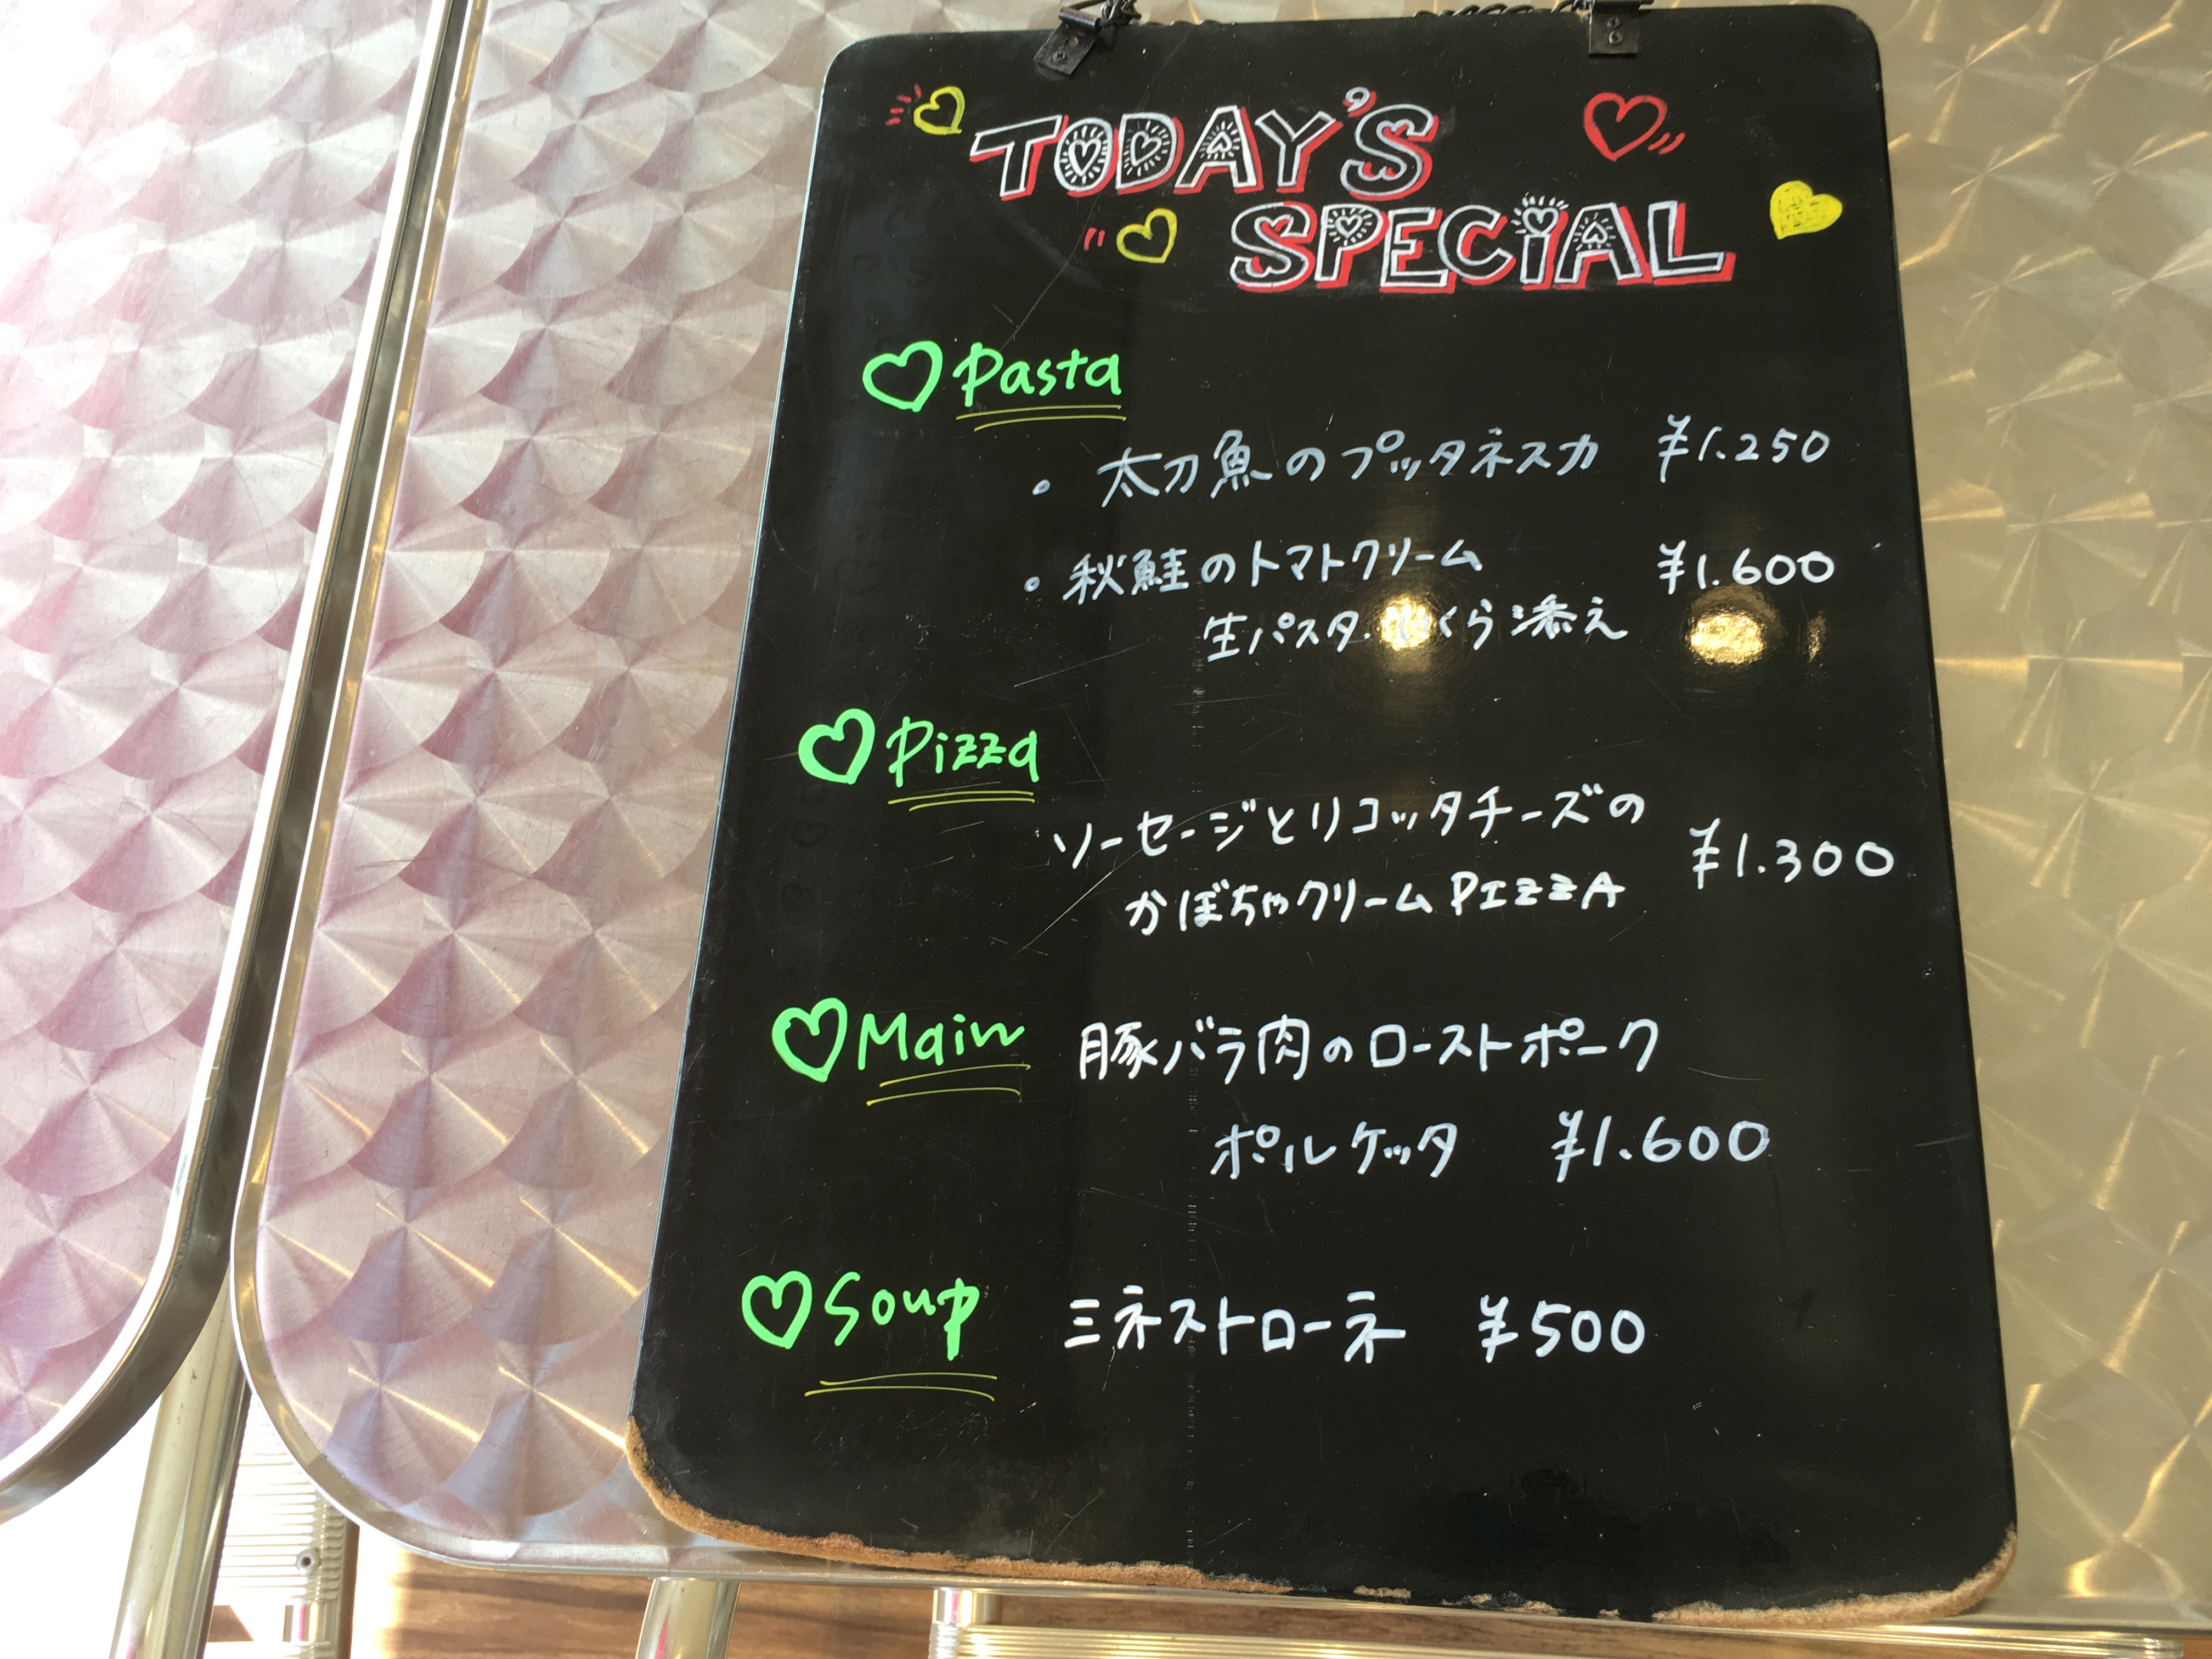 TODAY'S
SPECiAL
Pasta
・太刀魚のプッタネスカ ¥1.250
・秋鮭のトマトクリーム ¥1.600
生パスタ くら添え
Pizza
ソーセージとリコッタチーズの
かぼちゃクリームPIZZA ¥1.300
Main 豚バラ肉のローストポーク
ポルケッタ ¥1.600
Soup ミネストローネ ¥500